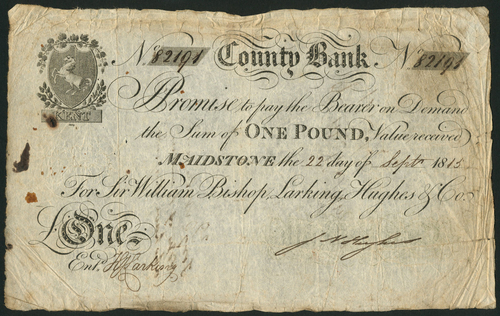 No. 82191 County Bank No. 82191
KENT
I Promise to pay the Bearer on Demand
the Sum of ONE POUND, Value received
MAIDSTONE the 22 day of Sept 1815
For Sir William Bishop, Larking, Hughes & Co.
£One
Entd. Larking
Hughes